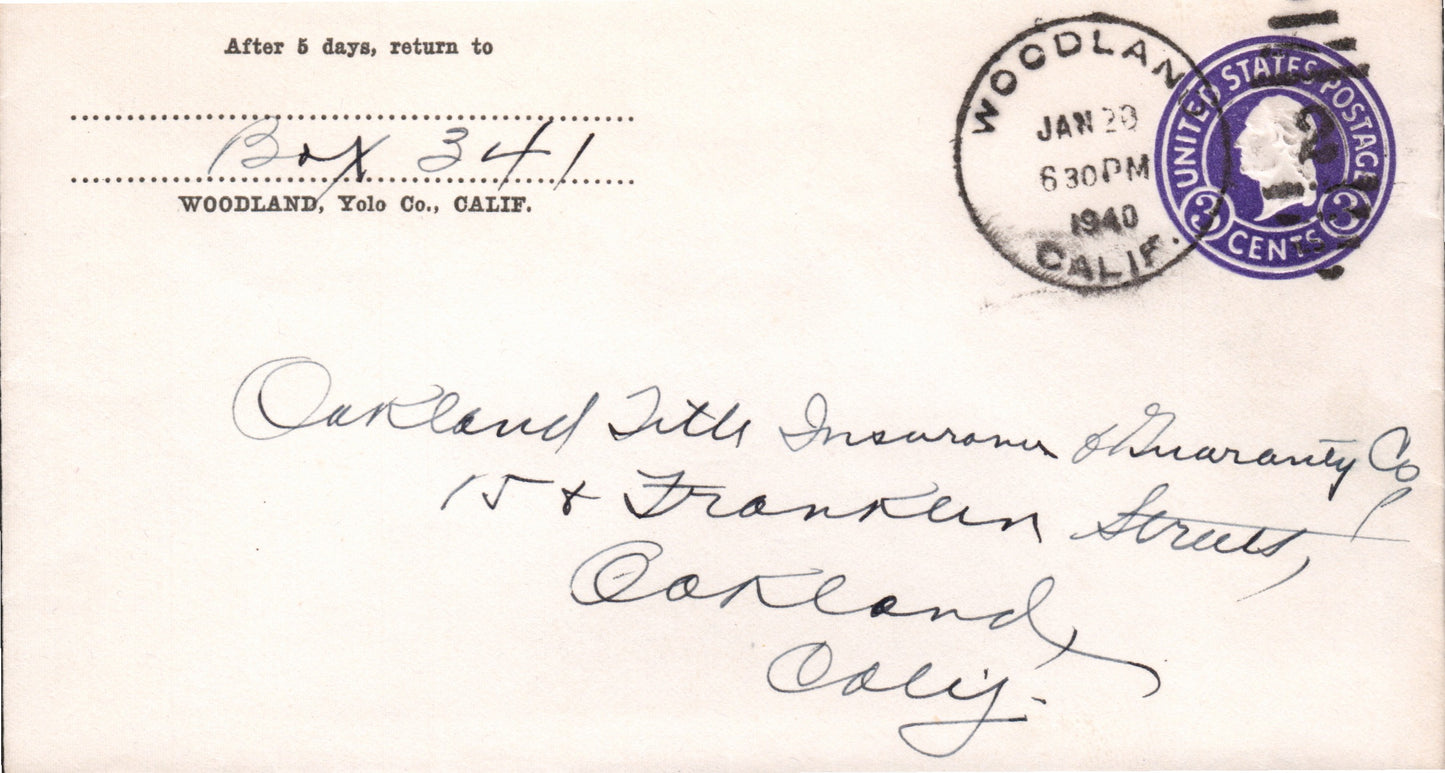 After 5 days, return to
Box 341
WOODLAND, Yolo Co., CALIF.
WOODLAND
JAN 20
6 30 PM
1940
CALIF.
UNITED STATES POSTAGE
3 CENTS 3
Oakland Title Insurance & Guaranty Co,
15 & Franklin Streets,
Oakland,
Calif.